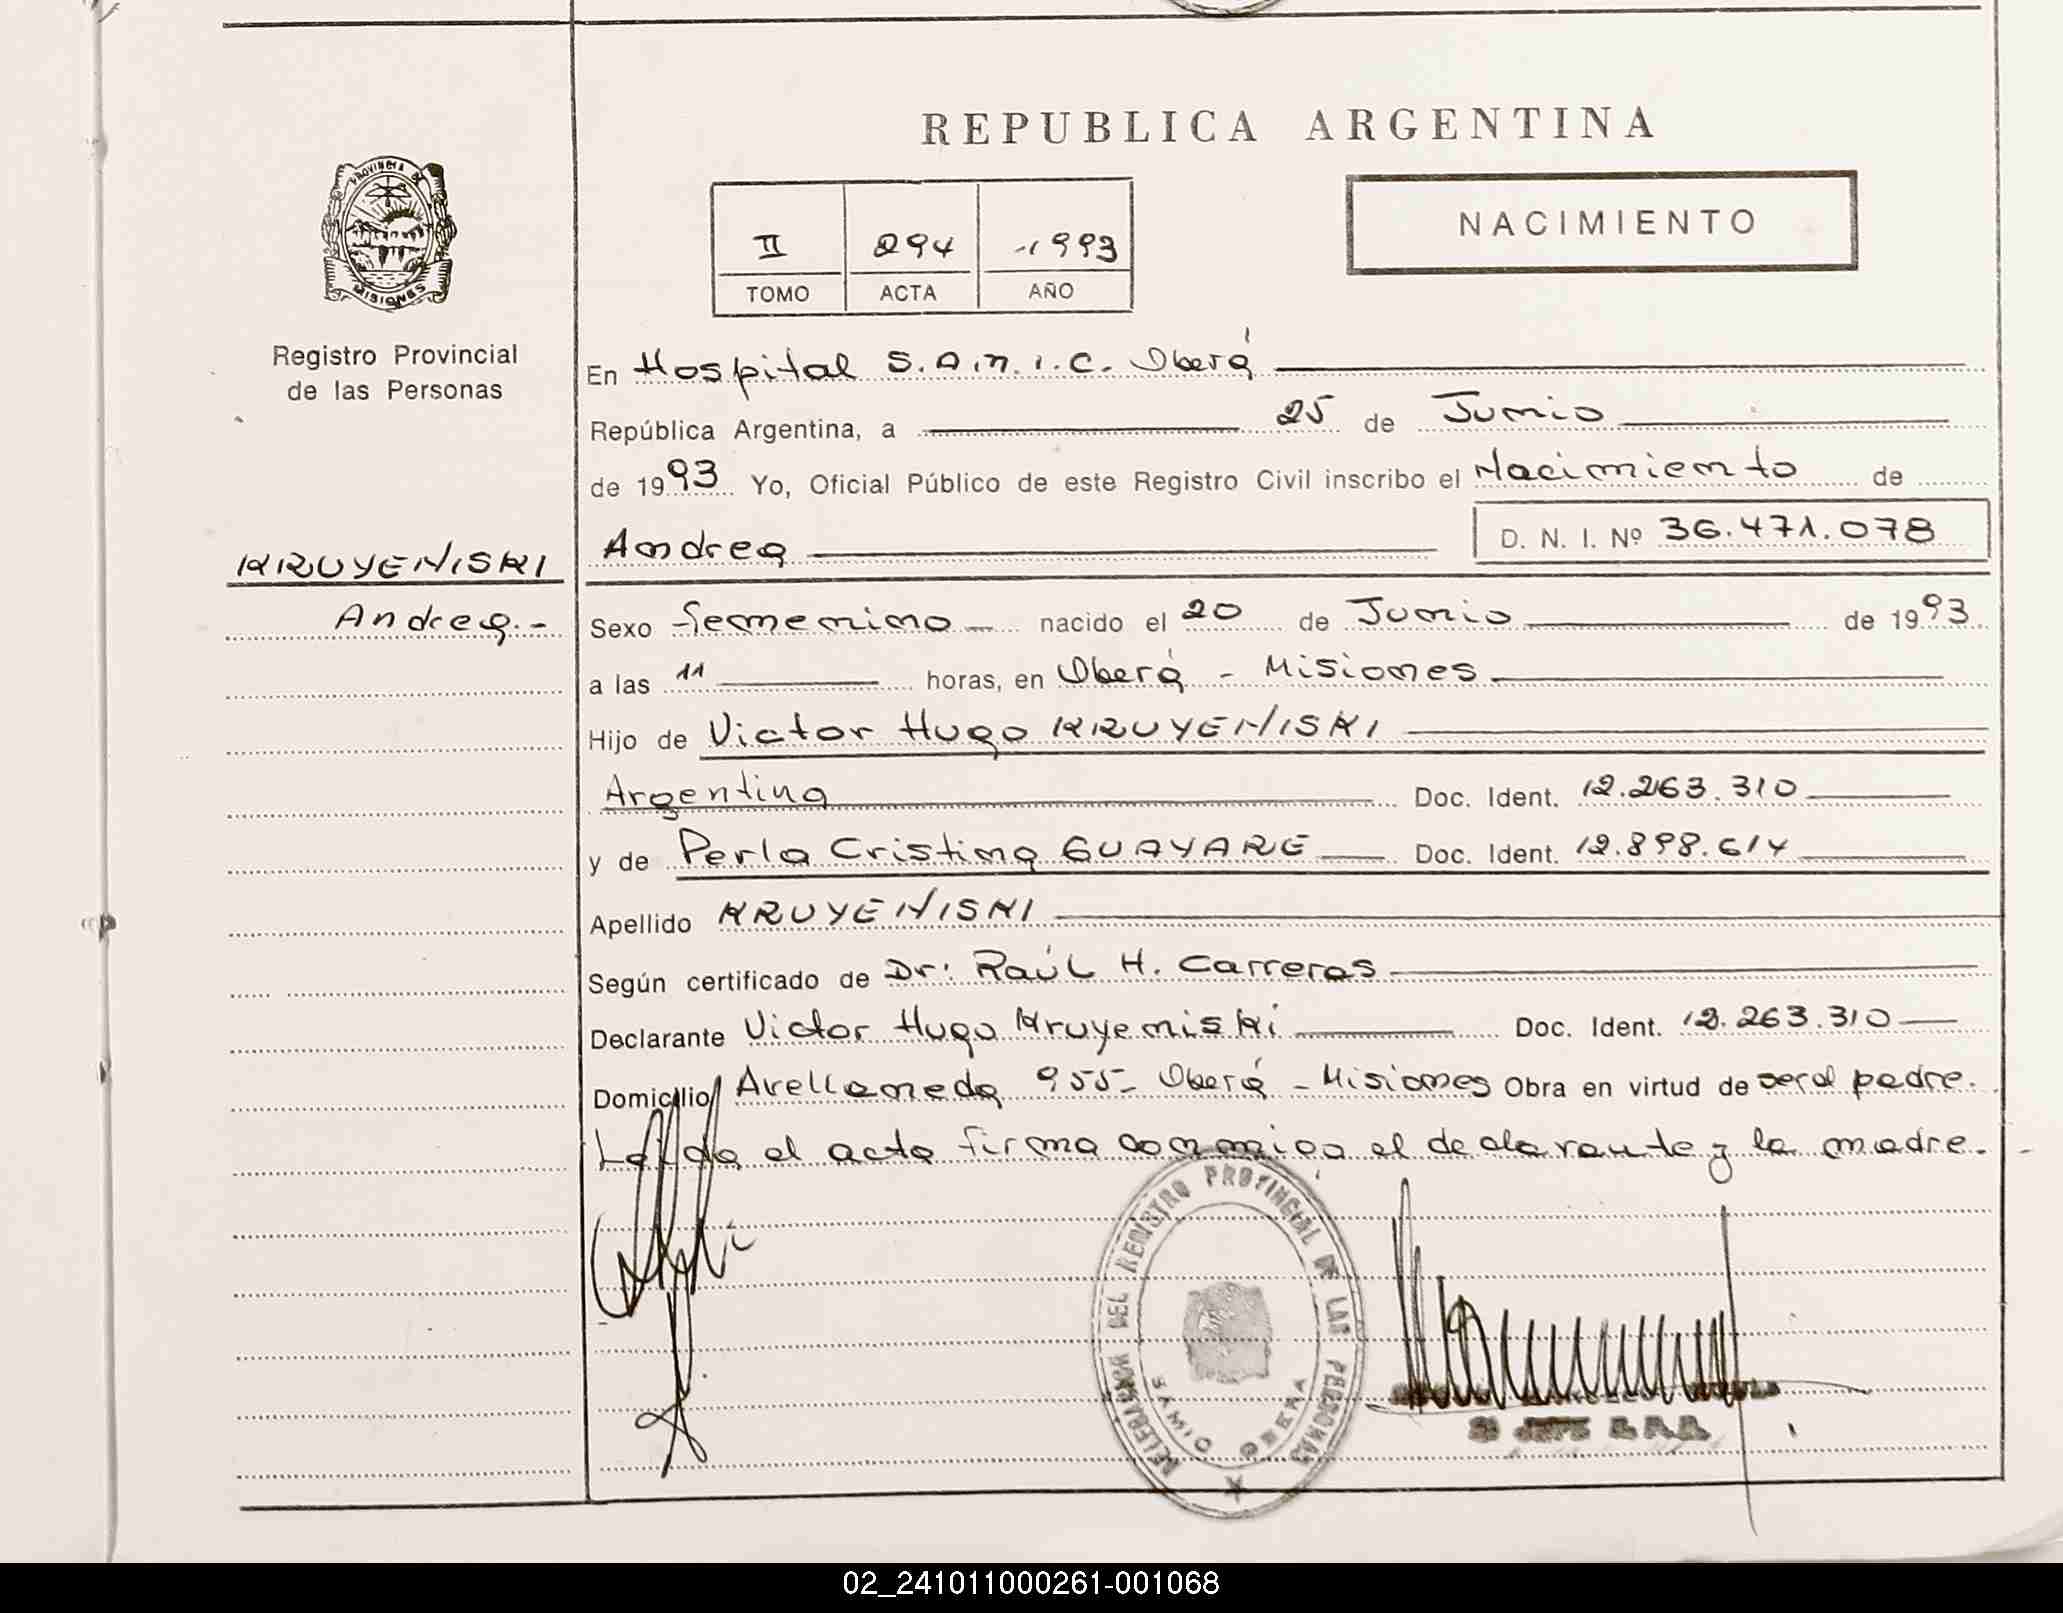 REPUBLICA ARGENTINA
PROVINCIA DE MISIONES
Registro Provincial
de las Personas
II 294 1993
TOMO ACTA AÑO
NACIMIENTO
En Hospital S.A.M.I.C. Oberá
República Argentina, a 25 de Junio
de 1993 Yo, Oficial Público de este Registro Civil inscribo el Nacimiento de
KRUYENISKI
Andrea.-
Andrea D. N. I. Nº 36.471.078
Sexo femenino nacido el 20 de Junio de 1993
a las 11 horas, en Oberá - Misiones
Hijo de Victor Hugo KRUYENISKI
Argentina Doc. Ident. 12.263.310
y de Perla Cristina GUAYARE Doc. Ident. 12.898.614
Apellido KRUYENISKI
Según certificado de Dr: Raúl H. Carreras
Declarante Victor Hugo Kruyeniski Doc. Ident. 12.263.310
Domicilio Avellaneda 955- Oberá - Misiones Obra en virtud de ser el padre.
Leída el acta firma conmigo el declarante y la madre.-
DEL REGISTRO PROVINCIAL DE LAS PERSONAS
SAMIC OBERA
02_241011000261-001068